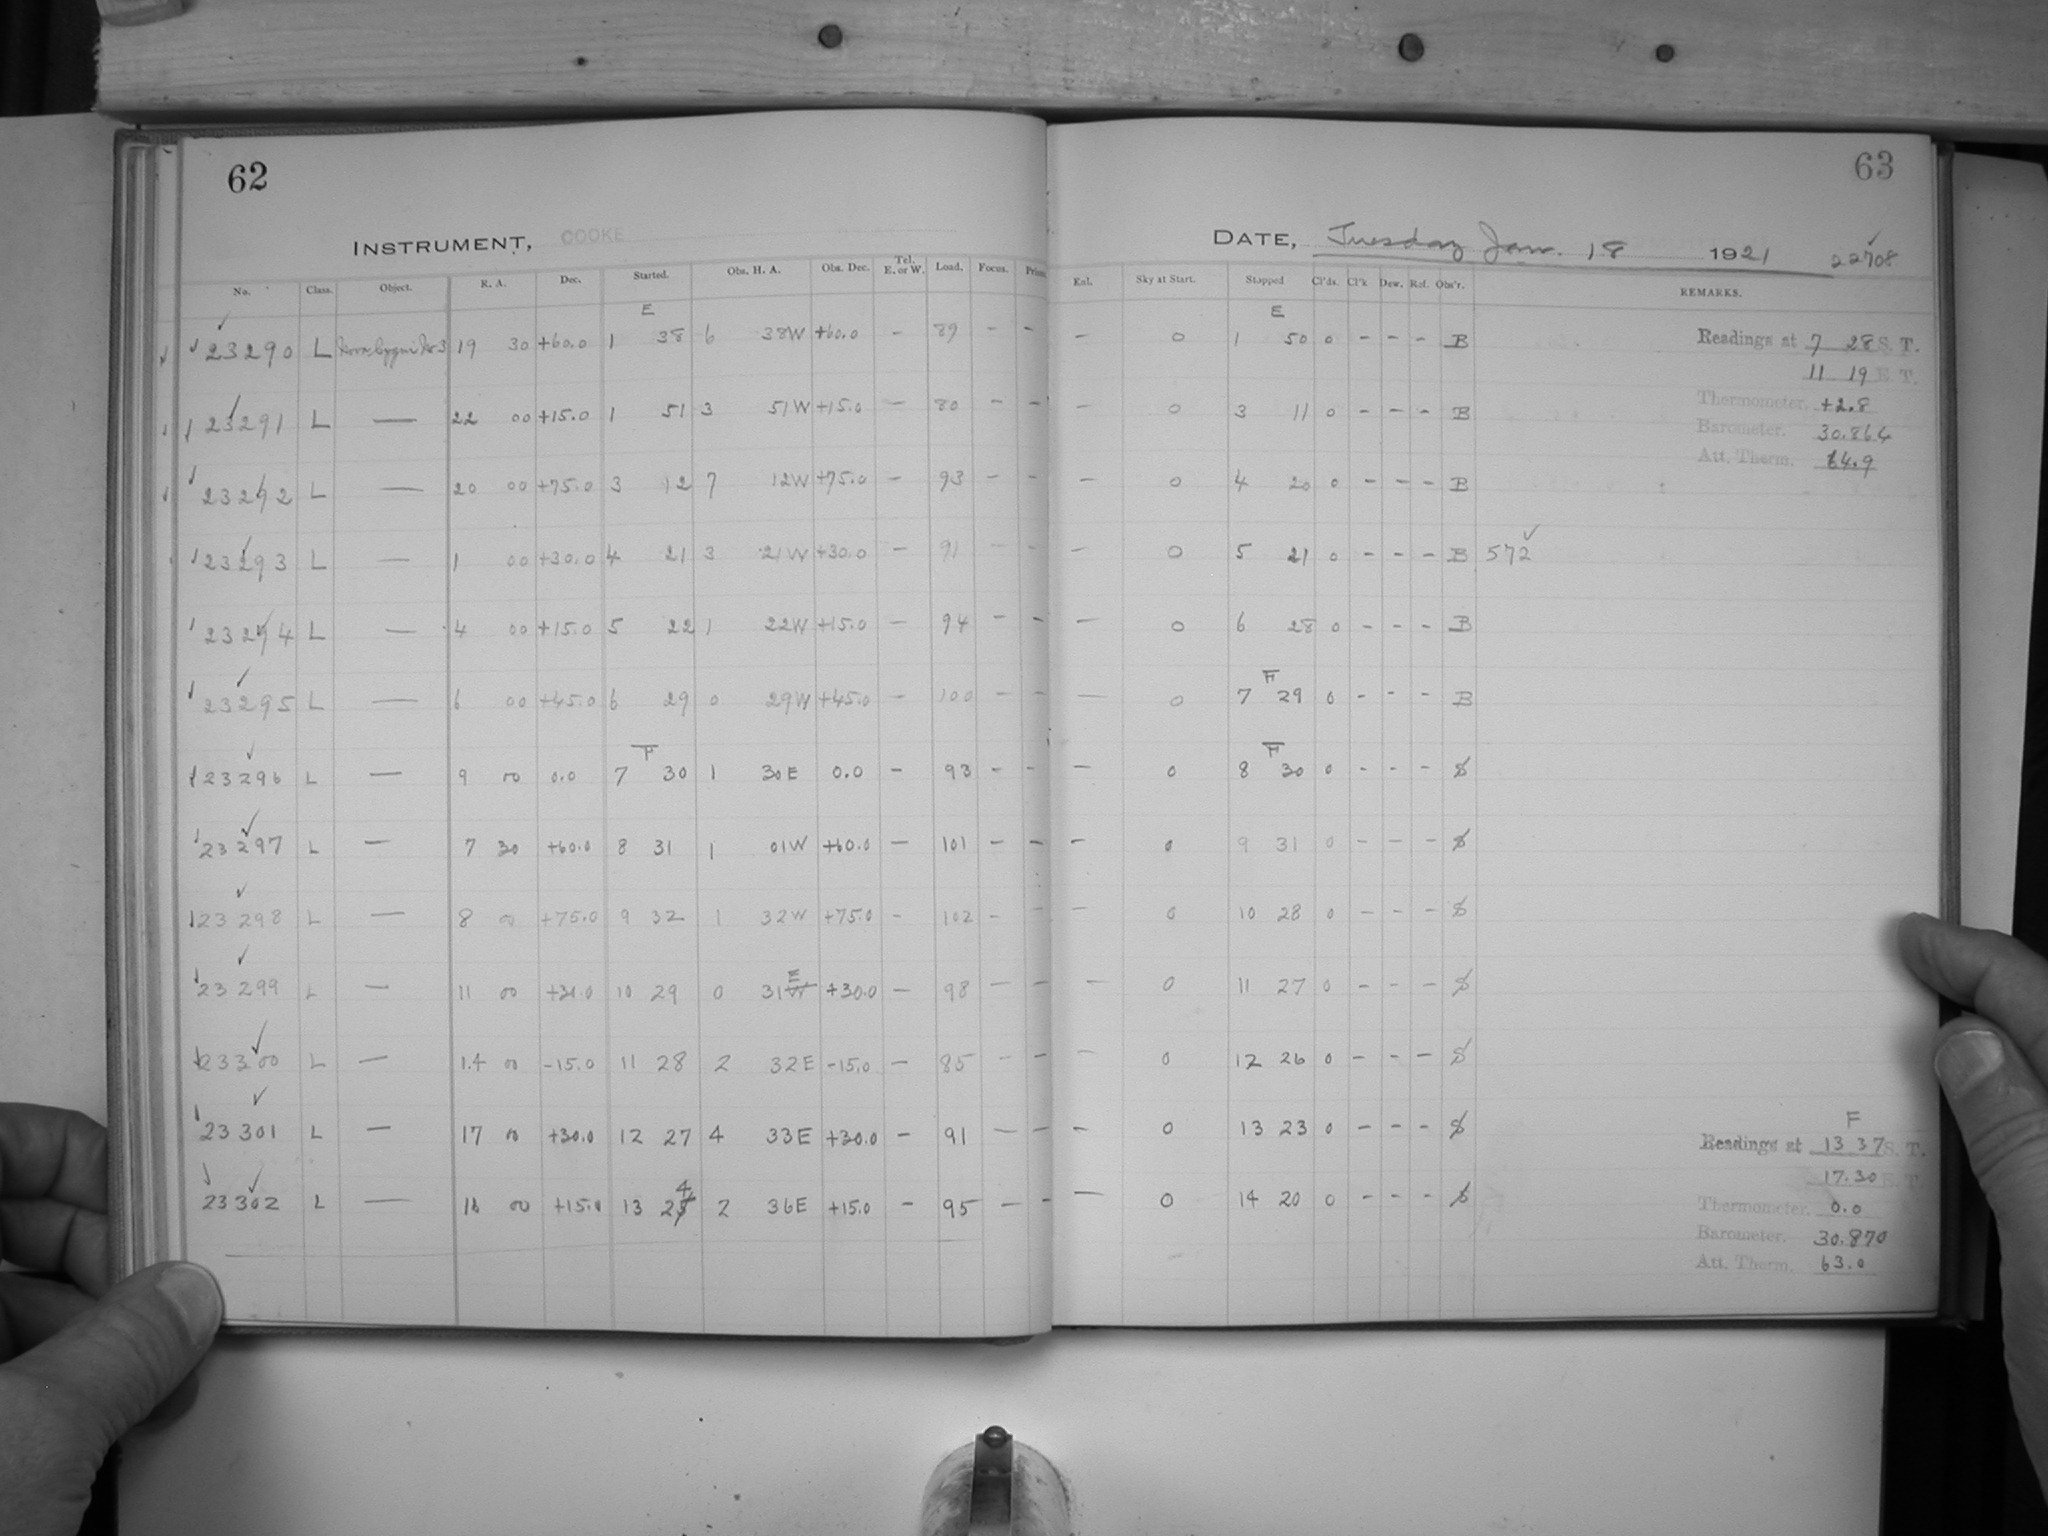 62
63
INSTRUMENT, COOKE
DATE, Tuesday Jan. 18 1921 22708
No. Class. Object. R. A. Dec. Started. Obs. H. A. Obs. Dec. Tel. E. or W. Load. Focus. Prism. Ext. Sky at Start. Stopped Cl'ds. Cl'k Dew. Ref. Obs'r. REMARKS.
E E
✓ ✓ 23290 L Nova Cygni No 3 19 30 +60.0 1 38 6 38W +60.0 – 89 – – – 0 1 50 0 – – – B
✓ ✓ 23291 L — 22 00 +15.0 1 51 3 51W +15.0 – 80 – – – 0 3 11 0 – – – B
✓ ✓ 23292 L — 20 00 +75.0 3 12 7 12W +75.0 – 93 – – – 0 4 20 0 – – – B
✓ 23293 L — 1 00 +30.0 4 21 3 21W +30.0 – 91 – – – 0 5 21 0 – – – B 572 ✓
✓ 23294 L — 4 00 +15.0 5 22 1 22W +15.0 – 94 – – – 0 6 28 0 – – – B
F
✓ 23295 L — 6 00 +45.0 6 29 0 29W +45.0 – 100 – – — 0 7 29 0 – – – B
F F
✓ 23296 L — 9 00 0.0 7 30 1 30E 0.0 – 93 – – – 0 8 30 0 – – – S
✓ 23297 L — 7 30 +60.0 8 31 1 01W +60.0 – 101 – – – 0 9 31 0 – – – S
✓ 23298 L — 8 00 +75.0 9 32 1 32W +75.0 – 102 – – – 0 10 28 0 – – – S
E
✓ 23299 L — 11 00 +30.0 10 29 0 31W +30.0 – 98 – – – 0 11 27 0 – – – S
✓ 23300 L — 14 00 -15.0 11 28 2 32E -15.0 – 85 – – – 0 12 26 0 – – – S
✓ 23301 L — 17 00 +30.0 12 27 4 33E +30.0 – 91 – – – 0 13 23 0 – – – S
4
✓ 23302 L — 16 00 +15.0 13 25 2 36E +15.0 – 95 – – — 0 14 20 0 – – – S
Readings at 7 28 S. T.
11 19 E. T.
Thermometer. +2.8
Barometer. 30.864
Att. Therm. 64.9
F
Readings at 13 37 S. T.
17.30 E. T.
Thermometer. 0.0
Barometer. 30.870
Att. Therm. 63.0